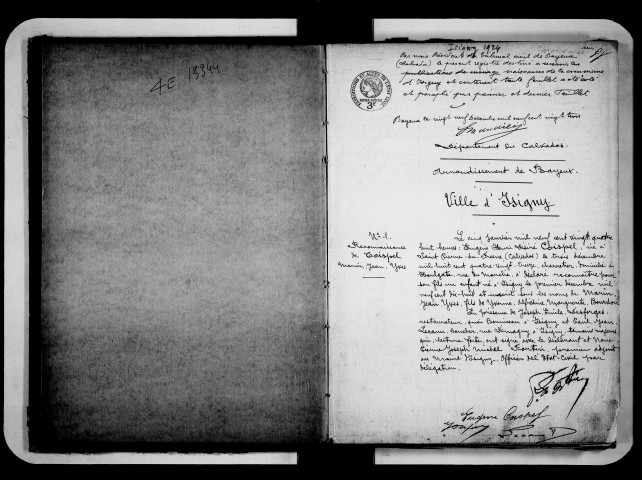 4E 13344
Isigny 1924
Par nous Président du Tribunal civil de Bayeux
(Calvados) le présent registre destiné à
publications de mariage naissances de la commune
d'Isigny et contenant trente feuillets a été coté
et paraphé par premier et dernier feuillet
Bayeux le vingt neuf décembre mil neuf cent vingt trois
Département du Calvados.
Arrondissement de Bayeux.
Ville d'Isigny
N° 1.
Reconnaissance
de Coispel
Marin, Jean, Yves
Le cinq janvier mil neuf cent vingt quatre
huit heures: Eugène Henri Désiré Coispel, né à
Saint Pierre du (Calvados) le trois décembre
mil huit cent quatre-vingt-treize, charretier, domicilié à
rue du Marche, a déclaré reconnaître pour
son fils un enfant né à Isigny le premier décembre mil
neuf cent dix-huit et inscrit sous les noms de Marin
Jean Yves, fils de Yvonne, Marguerite,
En présence de Joseph, Emile, Desforges,
restaurateur, à Isigny et Paul Jean
Lecanu, rue à Isigny, témoins majeurs
qui, lecture faite, ont signé avec le déclarant et Nous
Joseph Michel Fortin, premier adjoint
au Maire d'Isigny, Officier de l'Etat-Civil par
délégation.
Eugene Coispel